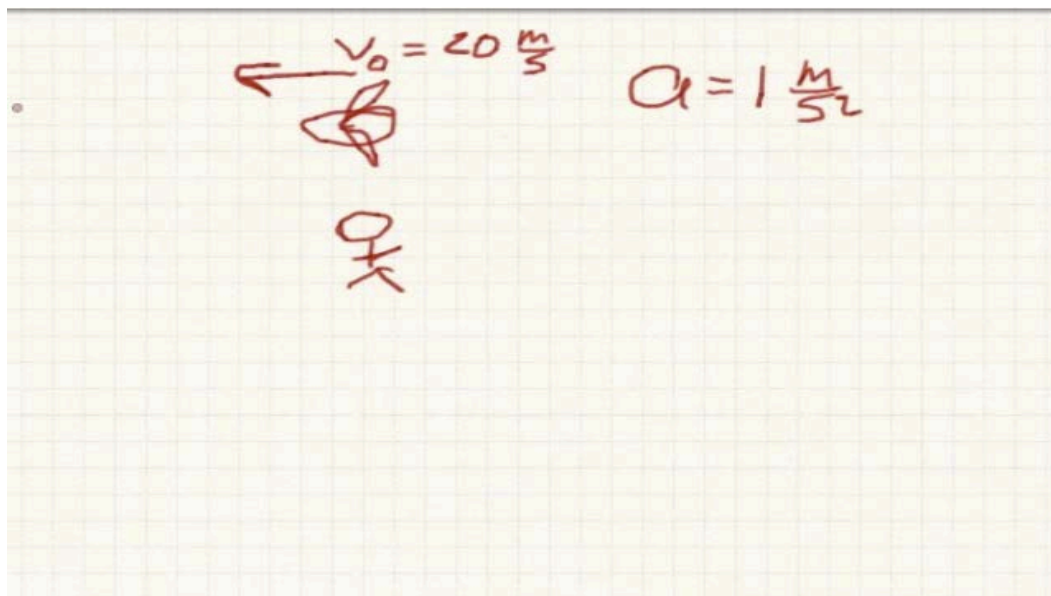 V₀ = 20 m/s
a = 1 m/s²